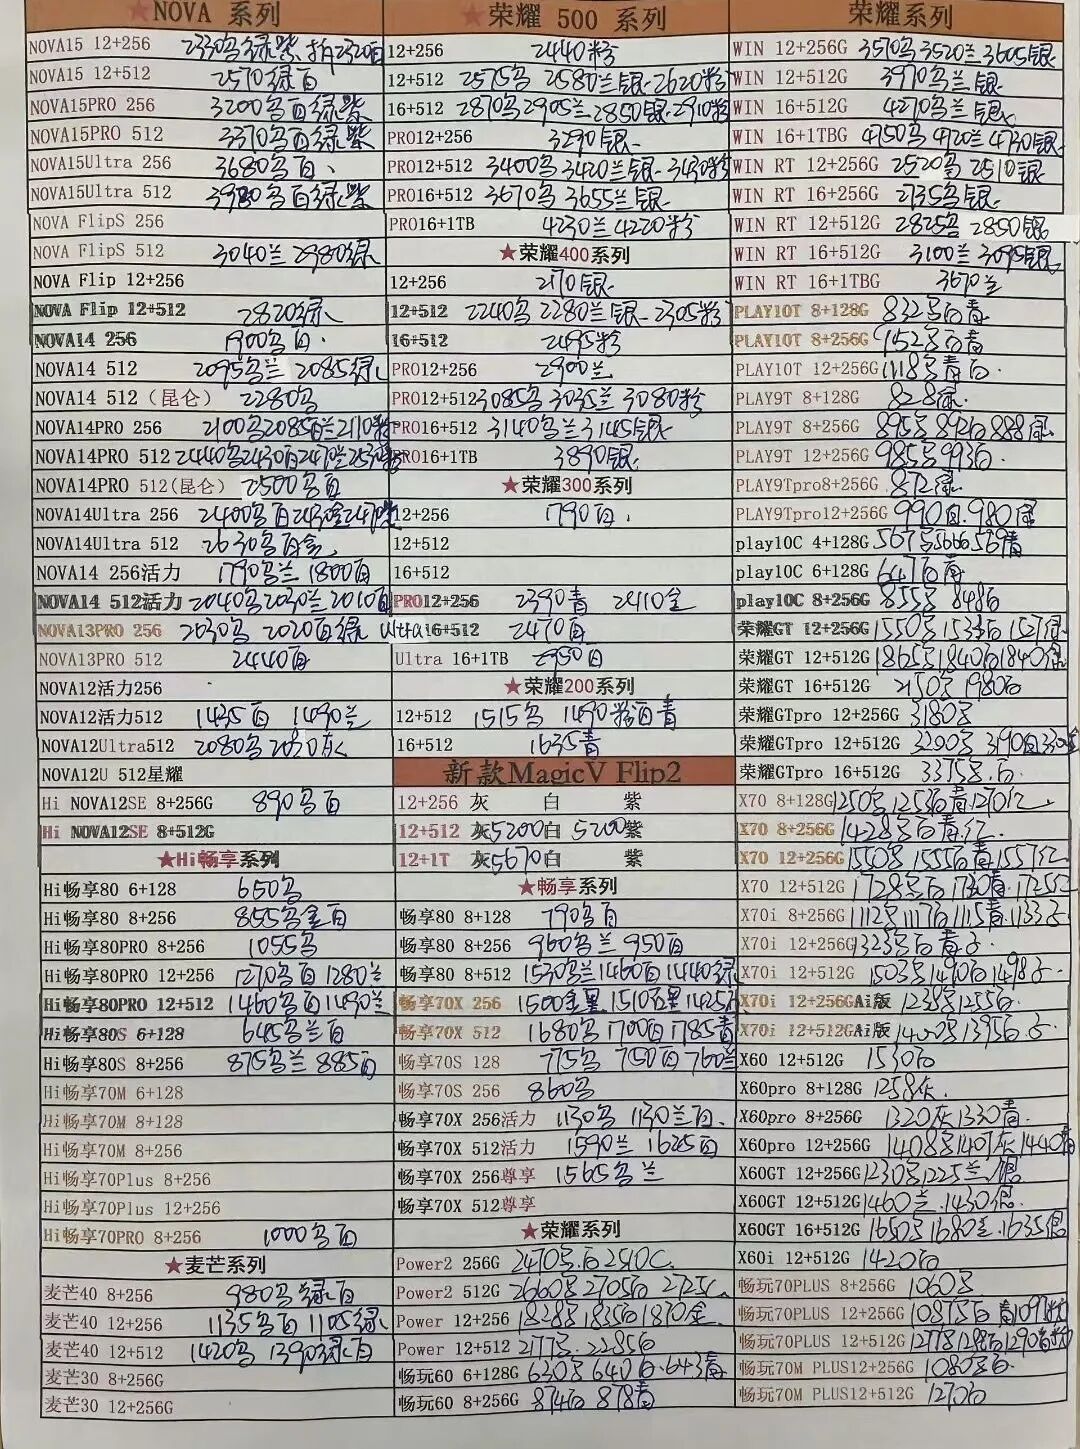 ★NOVA 系列
NOVA15 12+256 2330乌绿紫 2320白
NOVA15 12+512 2570绿白
NOVA15PRO 256 3200乌白绿紫
NOVA15PRO 512 3370乌白绿紫
NOVA15Ultra 256 3680乌白、
NOVA15Ultra 512 3980乌白绿紫
NOVA FlipS 256
NOVA FlipS 512 3040兰 2980绿
NOVA Flip 12+256
NOVA Flip 12+512 2820绿
NOVA14 256 1900乌白.
NOVA14 512 2095乌兰 2085绿
NOVA14 512（昆仑） 2280乌
NOVA14PRO 256 2100乌2085白兰2110粉
NOVA14PRO 512 2440乌2430白
NOVA14PRO 512(昆仑) 2500乌白
NOVA14Ultra 256 2400乌白
NOVA14Ultra 512 2630乌白金
NOVA14 256活力 1790乌兰 1800白
NOVA14 512活力 2040乌2030兰2010白
NOVA13PRO 256 2030乌 2020白绿
NOVA13PRO 512 2440白
NOVA12活力256
NOVA12活力512 1435白 1490兰
NOVA12Ultra512 2080乌
NOVA12U 512星耀
Hi NOVA12SE 8+256G 890乌白
Hi NOVA12SE 8+512G
★Hi畅享系列
Hi畅享80 6+128 650乌
Hi畅享80 8+256 855乌金白
Hi畅享80PRO 8+256 1055乌
Hi畅享80PRO 12+256 1270乌白1280兰
Hi畅享80PRO 12+512 1460乌白1430兰
Hi畅享80S 6+128 645乌兰白
Hi畅享80S 8+256 875乌兰885白
Hi畅享70M 6+128
Hi畅享70M 8+128
Hi畅享70M 8+256
Hi畅享70Plus 8+256
Hi畅享70Plus 12+256
Hi畅享70PRO 8+256 1000乌白
★麦芒系列
麦芒40 8+256 980乌绿白
麦芒40 12+256 1135乌白1105绿
麦芒40 12+512 1420乌 1390绿白
麦芒30 8+256G
麦芒30 12+256G
★荣耀 500 系列
12+256 2440粉
12+512 2575乌 2580兰银 2620粉
16+512 2870乌2905兰2850银2910粉
PRO12+256 3290银
PRO12+512 3400乌3420兰银 3430粉
PRO16+512 3670乌3655兰银
PRO16+1TB 4230兰4220粉
★荣耀400系列
12+256 2170银
12+512 2240乌2280兰银 2305粉
16+512 2495粉
PRO12+256 2900兰
PRO12+512 3085乌3035兰3080粉
PRO16+512 3140乌兰3145银
PRO16+1TB 3890银
★荣耀300系列
12+256 1790白,
12+512
16+512
PRO12+256 2390青 2410金
Ultra16+512 2470白
Ultra 16+1TB 2950白
★荣耀200系列
12+512 1515乌 1490粉白青
16+512 1635青
新款MagicV Flip2
12+256 灰 白 紫
12+512 灰5200白 5200紫
12+1T 灰5670白 紫
★畅享系列
畅享80 8+128 790乌白
畅享80 8+256 960乌兰950白
畅享80 8+512 1530乌兰1460白1440绿
畅享70X 256 1500金黑
畅享70X 512 1680乌1700白1785青
畅享70S 128 775乌 750白760兰
畅享70S 256 860乌
畅享70X 256活力 1130乌 1130兰白、
畅享70X 512活力 1590兰 1625白
畅享70X 256尊享 1565乌兰
畅享70X 512尊享
★荣耀系列
Power2 256G 2470黑.白2510C.
Power2 512G 2660黑2705白2725C
Power 12+256 1828黑1835白1870金
Power 12+512 2177黑.2285白
畅玩60 6+128G 630黑640白.643青
畅玩60 8+256G 874白 878青
荣耀系列
WIN 12+256G 3570乌3520兰3605银
WIN 12+512G 3970乌兰银
WIN 16+512G 4270乌兰银
WIN 16+1TBG 4750乌4720兰4730银
WIN RT 12+256G 2520乌2510银
WIN RT 16+256G 2735乌银
WIN RT 12+512G 2825乌2850银
WIN RT 16+512G 3100兰3095银
WIN RT 16+1TBG 3670兰
PLAY10T 8+128G 832黑白青
PLAY10T 8+256G 952黑白青
PLAY10T 12+256G 1118黑青白.
PLAY9T 8+128G 828绿.
PLAY9T 8+256G 895黑892白888绿
PLAY9T 12+256G 985黑993白.
PLAY9Tpro8+256G 872绿
PLAY9Tpro12+256G 990白.980绿
play10C 4+128G 567黑
play10C 6+128G 647白青
play10C 8+256G 855黑848白
荣耀GT 12+256G 1550黑1535白1527银
荣耀GT 12+512G 1865黑1840白1840银
荣耀GT 16+512G 2150黑1980白
荣耀GTpro 12+256G 3180黑
荣耀GTpro 12+512G 3200黑3190白
荣耀GTpro 16+512G 3375黑.白
X70 8+128G 1250黑1255白青.1270红
X70 8+256G 1428黑白青.红
X70 12+256G 1550黑1555白青1557红
X70 12+512G 1728黑白1730青.1725红
X70i 8+256G 1112黑1117白1115青.1133
X70i 12+256G 1323黑白青
X70i 12+512G 1503黑1490白1498
X70i 12+256GAi版 1235黑1255白.
X70i 12+512GAi版 1395白
X60 12+512G 1530白
X60pro 8+128G 1258灰.
X60pro 8+256G 1320灰1330青.
X60pro 12+256G 1408黑1407灰1440青
X60GT 12+256G 1230黑1225兰.银
X60GT 12+512G 1460兰.1430银.
X60GT 16+512G 1650黑1680兰.1635银
X60i 12+512G 1420白
畅玩70PLUS 8+256G 1060黑
畅玩70PLUS 12+256G 1087黑白
畅玩70PLUS 12+512G
畅玩70M PLUS12+256G 1080黑白.
畅玩70M PLUS12+512G 1270白